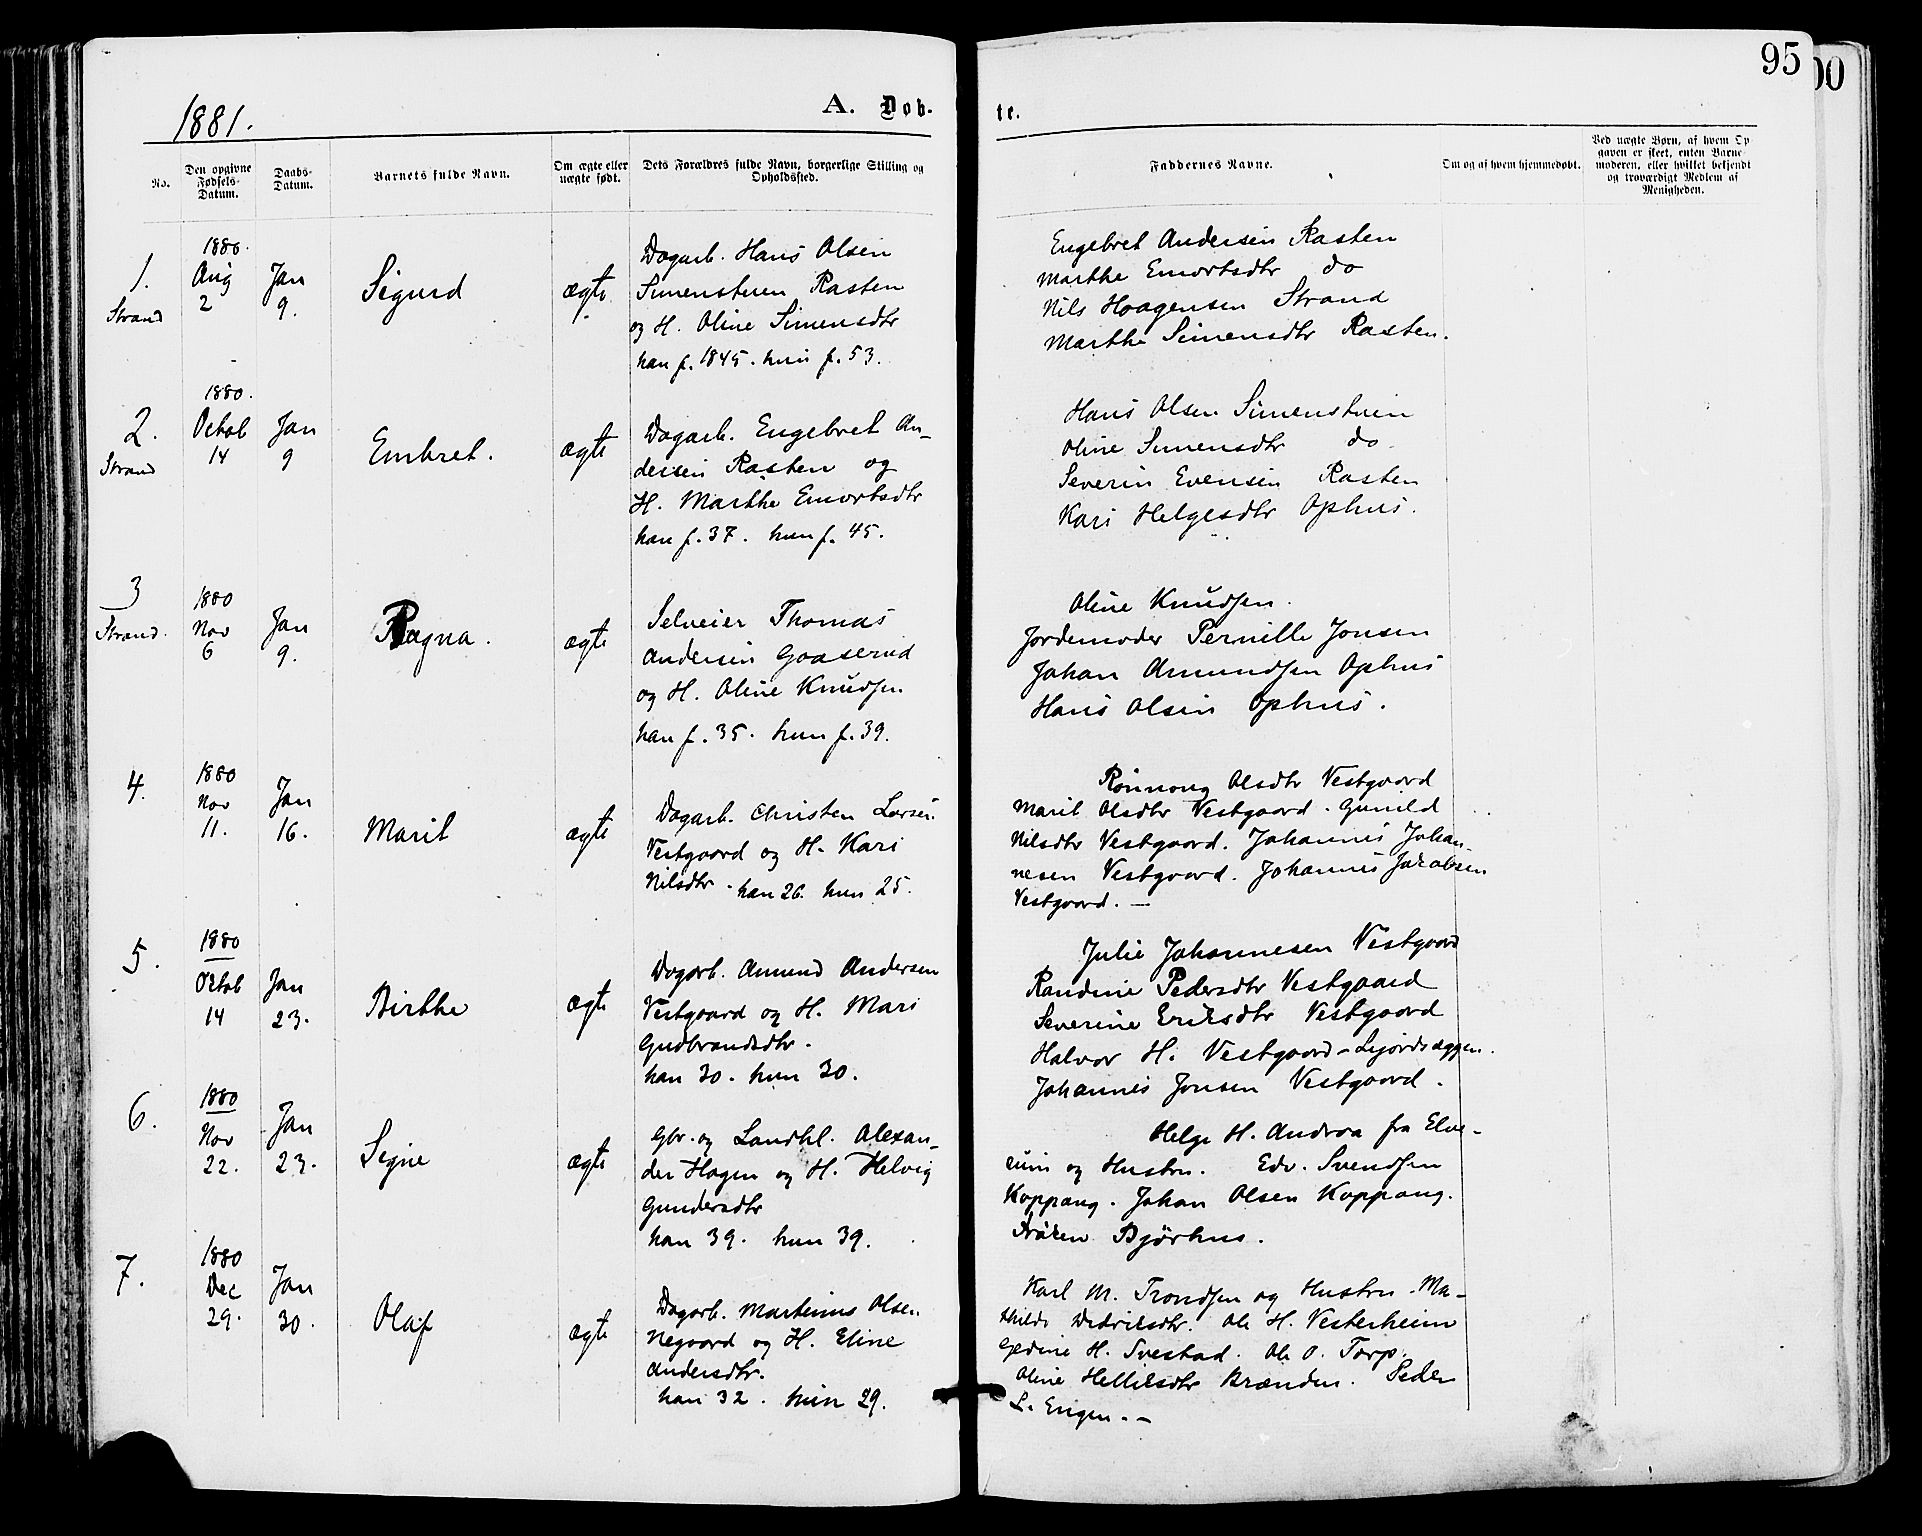 95
00
1881.
A. Døb-
te.
No.
Den opgivne Fødsels-Datum.
Daabs-Datum.
Barnets fulde Navn.
Om ægte eller uægte født.
Dets Forældres fulde Navn, borgerlige Stilling og Opholdssted.
Faddernes Navne.
Om og af hvem hjemmedøbt.
Ved uægte Børn, af hvem Opgaven er skeet, enten Barnemoderen, eller hvilket bekjendt og troværdigt Medlem af Menigheden.
1.
Strand
1880.
Aug
2
Jan
9.
Sigurd
ægte
Dagarb. Hans Olsen
Simenstuen Rasten
og H. Oline Simensdtr
han f. 1845. hun f. 53.
Engebret Andersen Rasten
Marthe Emortsdtr do
Nils Haagensen Strand
Marthe Simensdtr Rasten.
2.
Strand
1880.
Octob
14
Jan
9
Embret.
ægte
Dagarb. Engebret An-
dersen Rasten og
H. Marthe Emortsdtr
han f. 37. hun f. 45.
Hans Olsen Simenstuen
Oline Simensdtr do.
Severin Evensen Rasten
Kari Helgesdtr Ophus.
3
Strand.
1880
Nov
6
Jan
9.
Ragna.
ægte
Selveier Thomas
Andersen Gaaserud
og H. Oline Knudsen
han f. 35. hun f. 39.
Oline Knudsen.
Jordemoder Pernille Jonsen
Johan Amundsen Ophus
Hans Olsen Ophus.
4.
1880
Nov
11.
Jan
16.
Marit
ægte
Dagarb. Christen Larsen
Vestgaard og H. Kari
Nilsdtr. han 26. hun 25.
Rønnoug Olsdtr Vestgaard
Marit Olsdtr Vestgaard. Gunild
Nilsdtr Vestgaard. Johannes Johan-
nesen Vestgaard. Johannes Jakobsen
Vestgaard. —
5.
1880
Octob
14
Jan
23.
Birthe
ægte
Dagarb. Amund Andersen
Vestgaard og H. Mari
Gudbrandsdtr.
han 30. hun 30.
Julie Johannesen Vestgaard
Randine Pedersdtr Vestgaard
Severine Eriksdtr Vestgaard
Halvor H. Vestgaard-
Johannes Jonsen Vestgaard.
6.
1880
Nov
22.
Jan
23.
Signe
ægte
Gbr. og Landhl. Alexan-
der Hagen og H. Helvig
Gundersdtr
han 39. hun 39.
Helge H. Andraa fra Elve-
rum og Hustru. Edv. Svendsen
Koppang. Johan Olsen Koppang.
Frøken Bjørhus.
7.
1880
Dec
29.
Jan
30.
Olaf
ægte
Dagarb. Martinus Olsen
Negaard og H. Eline
Andersdtr.
han 32. hun 29.
Karl M. Trondsen og Hustru Ma-
thilde Didriksdtr. Ole H. Vesterheim
Gedine H. Svestad. Ole O. Torp.
Oline Helliksdtr Brænden. Peder
L. Engen. —